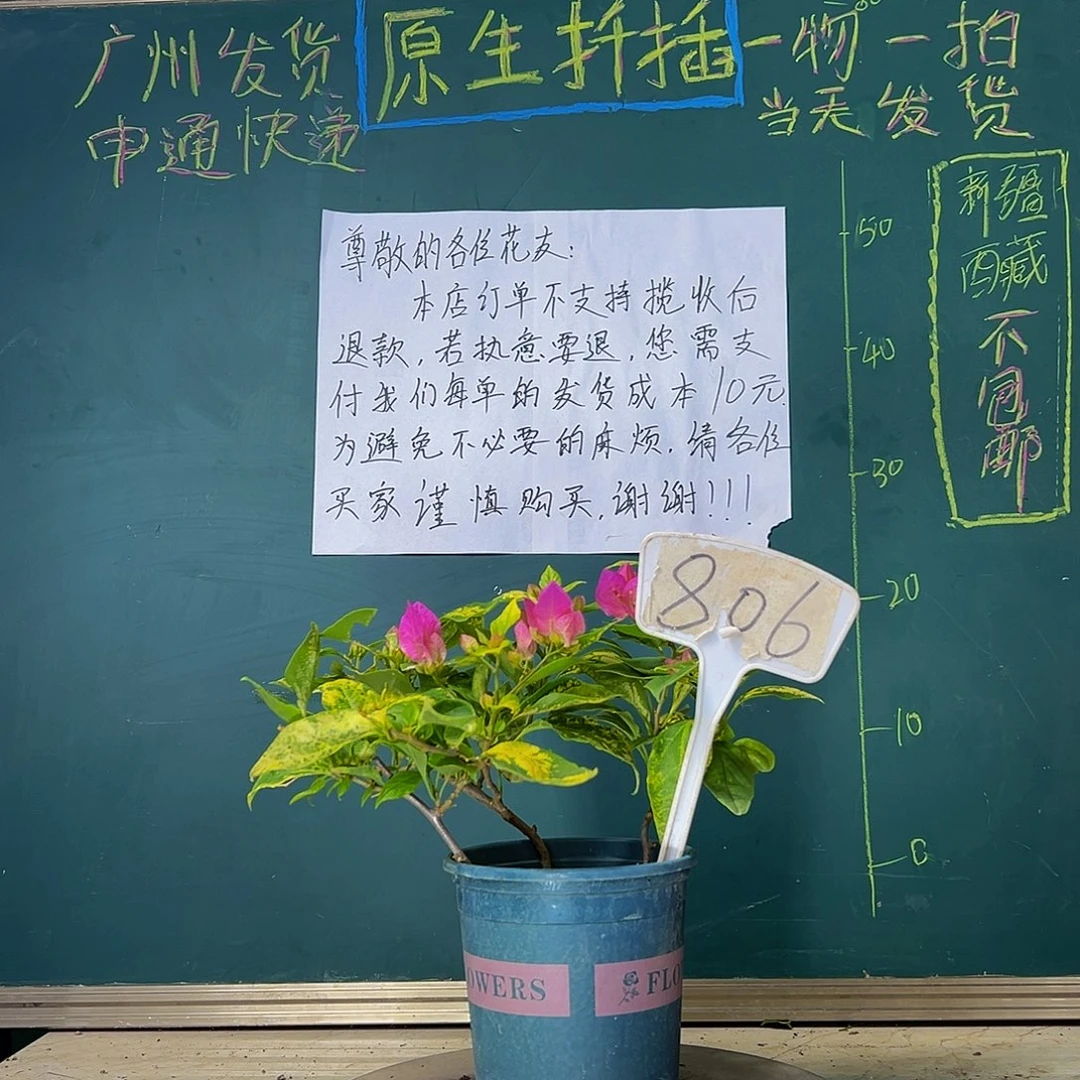 广州发货
申通快递
原生扦插
一物一拍
当天发货
新疆
西藏
不
包
邮
尊敬的各位花友:
本店订单不支持揽收后
退款,若执意要退,您需支
付我们每单的发货成本10元.
为避免不必要的麻烦.请各位
买家谨慎购买,谢谢!!!
50
40
30
20
10
0
806
OWERS
FLO